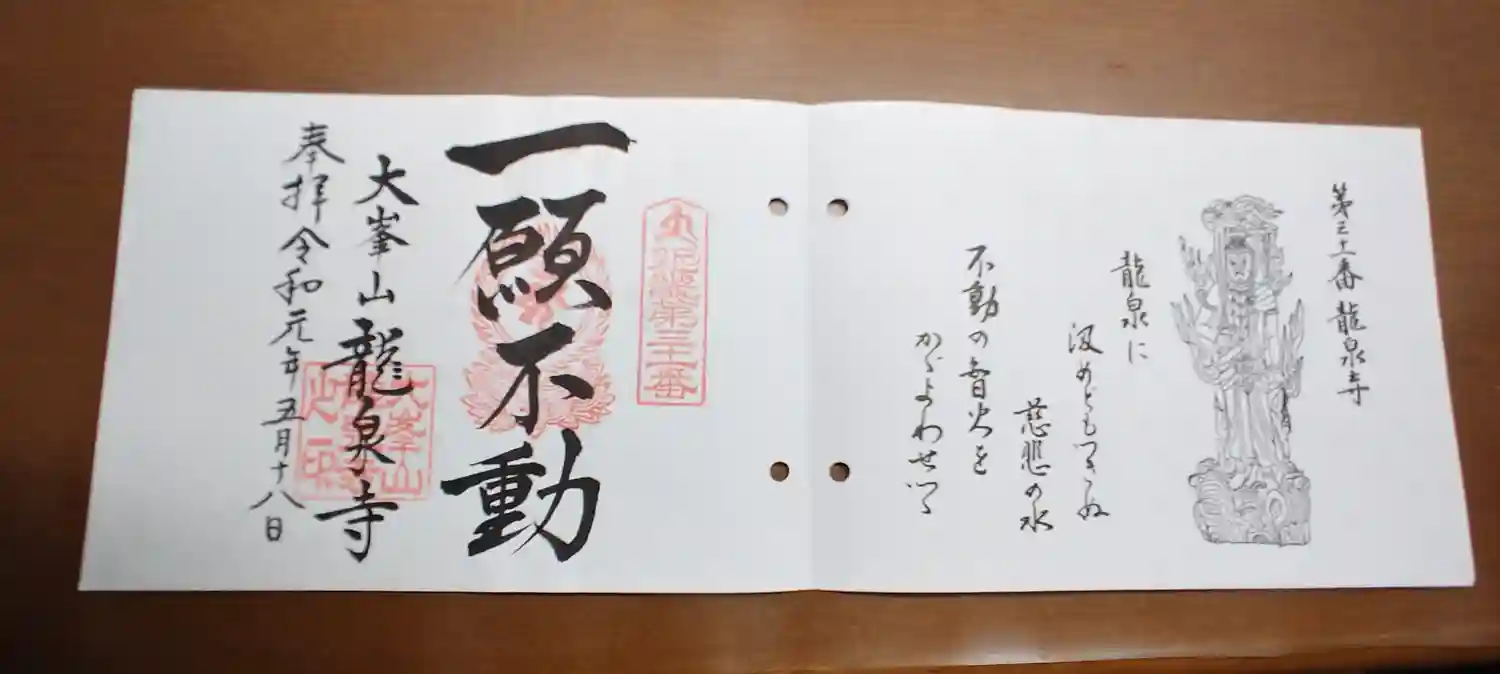 第三十一番 龍泉寺
龍泉に
汲めどもつきぬ
慈悲の水
不動の智火を
かゞよわせつゝ
近畿第三十一番
一願不動
大峯山 龍泉寺
大峯山
奉拝 令和元年五月十八日